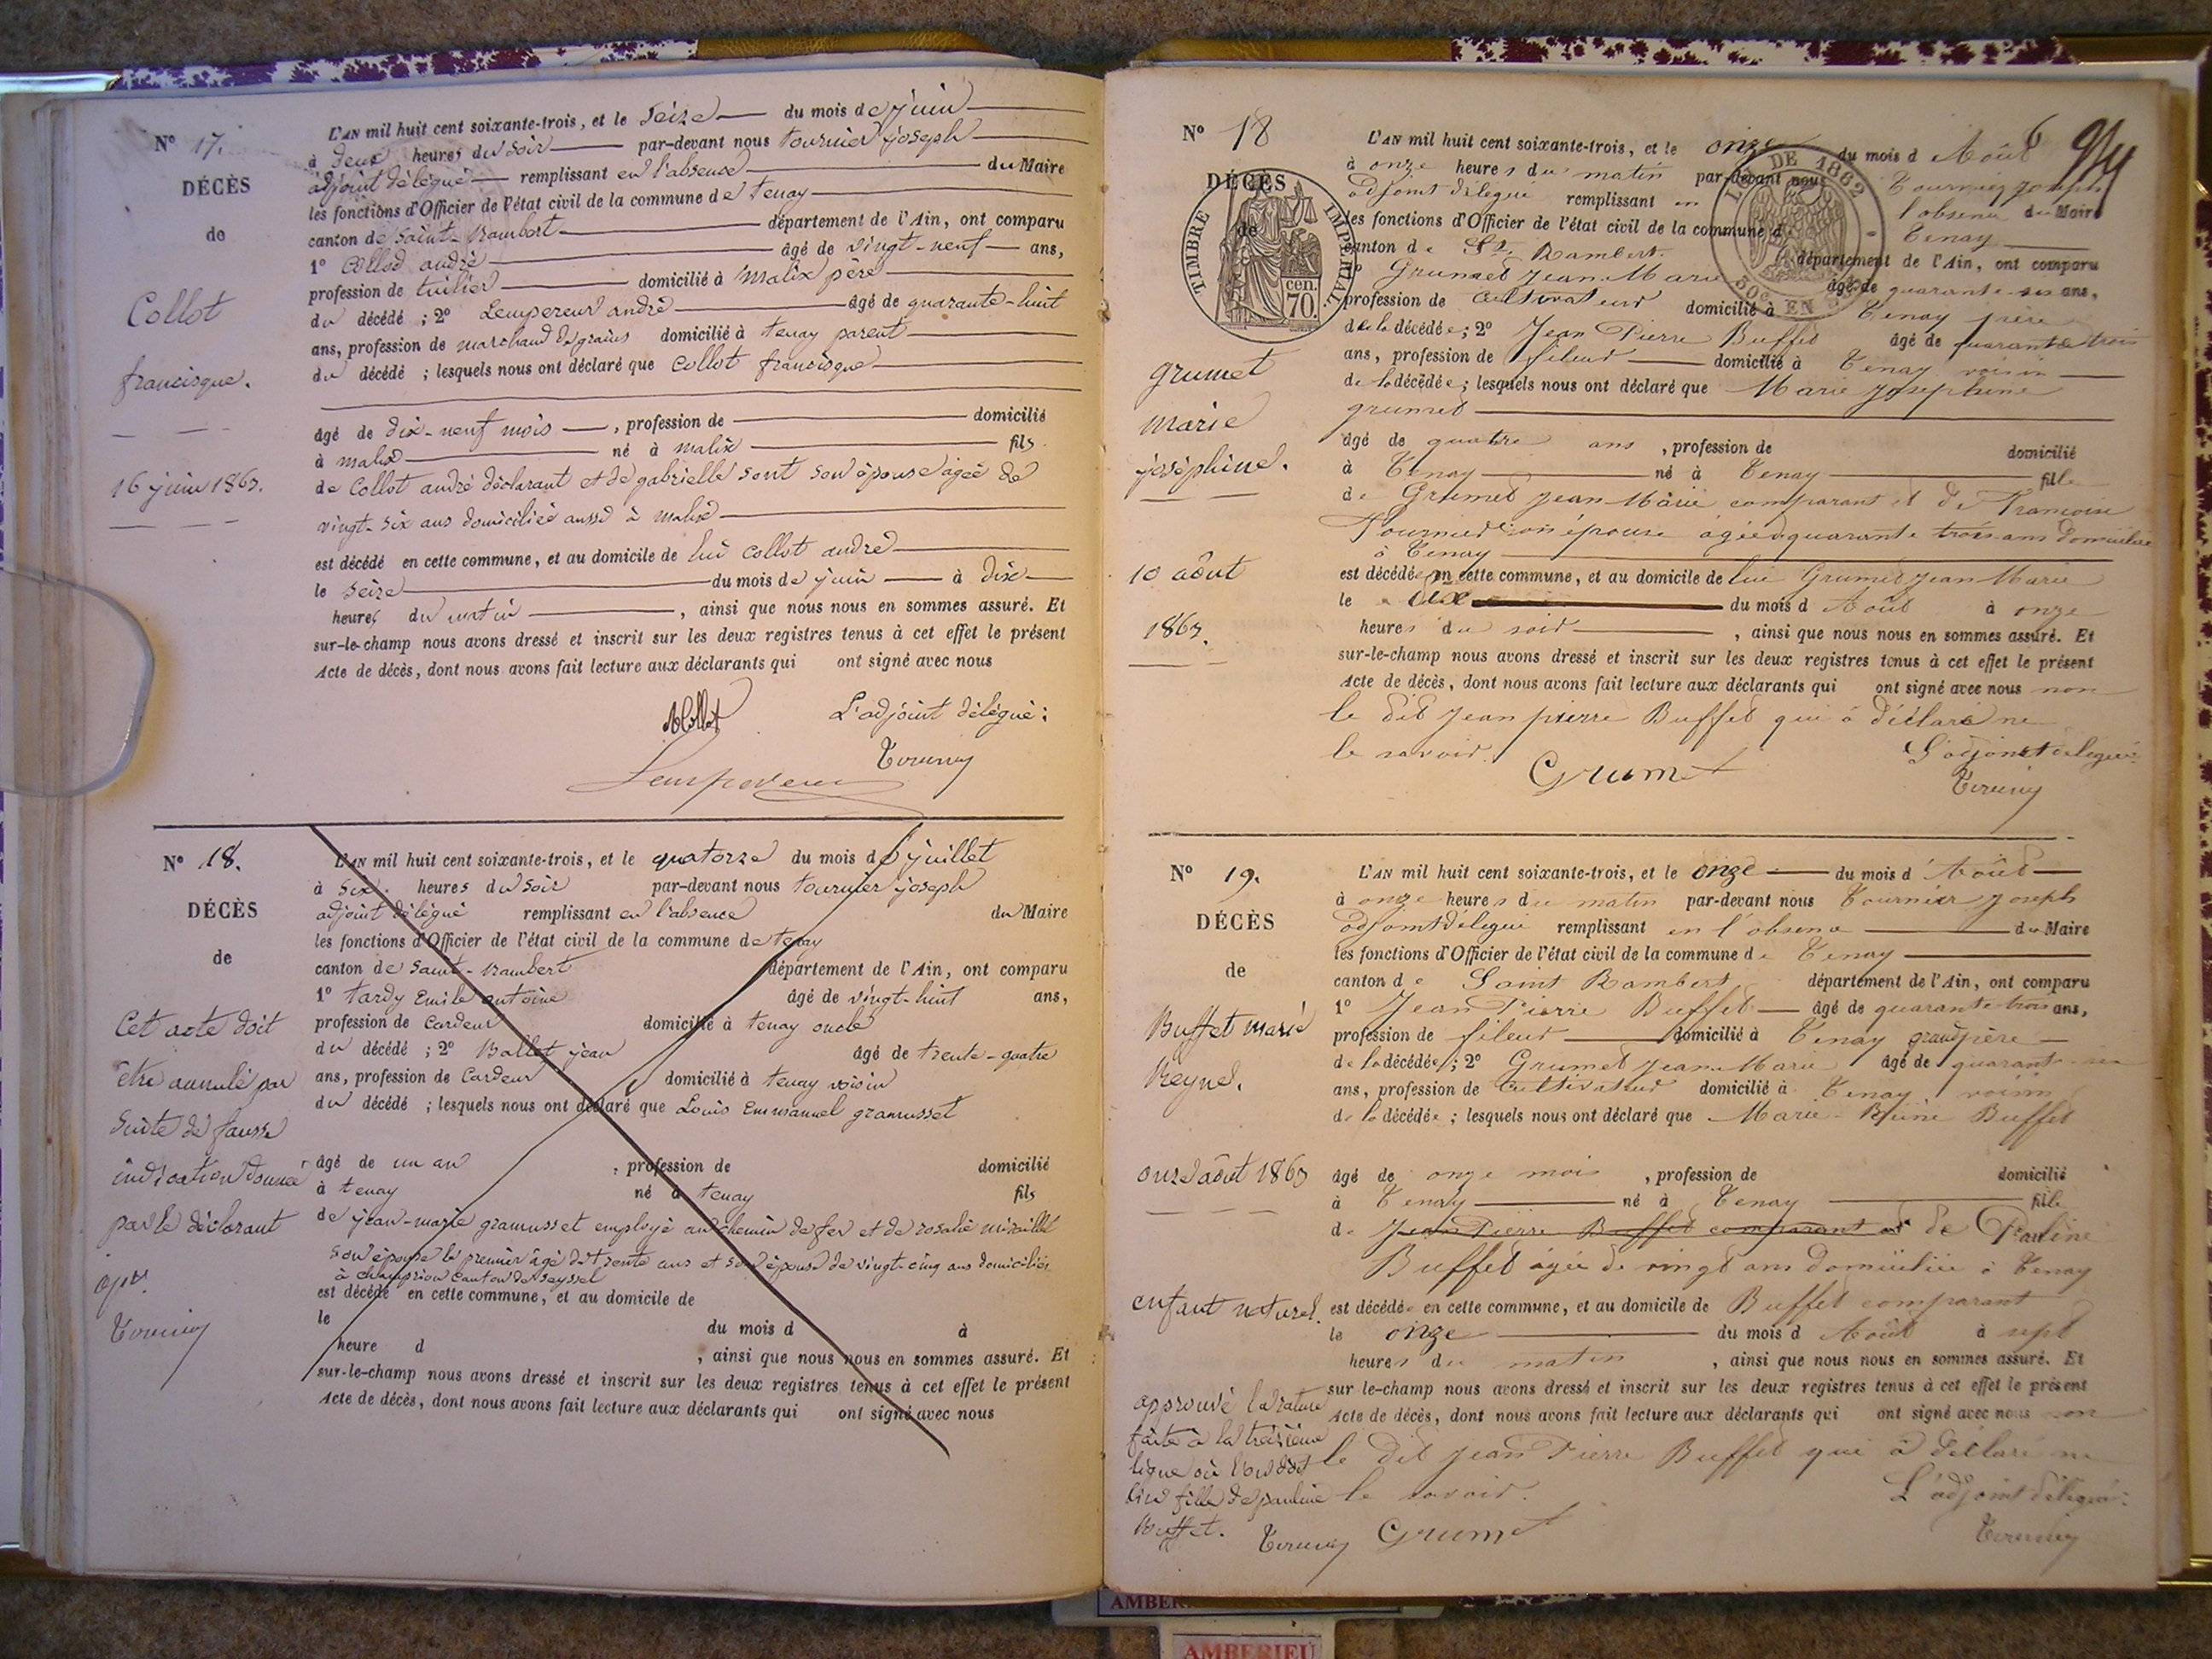 N° 17.
DÉCÈS
de
Collot
francisque.
16 juin 1863.
L'AN mil huit cent soixante-trois, et le seize du mois de juin
à deux heures du soir par-devant nous tournier joseph
adjoint délégué remplissant en l'absence du Maire
les fonctions d'Officier de l'état civil de la commune de tenay
canton de saint-Rambert département de l'Ain, ont comparu
1° Collot andré âgé de vingt-neuf ans,
profession de tuilier domicilié à malix père
du décédé ; 2° Lempereur andré âgé de quarante-huit
ans, profession de marchand de grains domicilié à tenay parent
du décédé ; lesquels nous ont déclaré que Collot francisque
âgé de dix-neuf mois , profession de domicilié
à malix né à malix fils
de Collot andré déclarant et de gabrielle sont son épouse âgée de
vingt-six ans domiciliée aussi à malix
est décédé en cette commune, et au domicile de lui Collot andré
le seize du mois de juin à dix
heures du matin , ainsi que nous nous en sommes assuré. Et
sur-le-champ nous avons dressé et inscrit sur les deux registres tenus à cet effet le présent
Acte de décès, dont nous avons fait lecture aux déclarants qui ont signé avec nous
ACollot L'adjoint délégué :
Lempereur Tournier
N° 18.
DÉCÈS
de
Cet acte doit
être annulé par
suite de fausse
indication donnée
par le déclarant
Tournier
L'AN mil huit cent soixante-trois, et le quatorze du mois de juillet
à six heures du soir par-devant nous tournier joseph
adjoint délégué remplissant en l'absence du Maire
les fonctions d'Officier de l'état civil de la commune de tenay
canton de saint-Rambert département de l'Ain, ont comparu
1° tardy Emile antoine âgé de vingt-huit ans,
profession de Cardeur domicilié à tenay oncle
du décédé ; 2° Ballet jean âgé de trente-quatre
ans, profession de Cardeur domicilié à tenay voisin
du décédé ; lesquels nous ont déclaré que Louis Emmanuel gramusset
âgé de un an , profession de domicilié
à tenay né à tenay fils
de jean-marie gramusset employé au chemin de fer et de rosalie
son épouse le premier âgé de trente ans et son épouse de vingt-cinq ans domiciliés
à canton de seyssel
est décédé en cette commune, et au domicile de
le du mois d à
heure d , ainsi que nous nous en sommes assuré. Et
sur-le-champ nous avons dressé et inscrit sur les deux registres tenus à cet effet le présent
Acte de décès, dont nous avons fait lecture aux déclarants qui ont signé avec nous
N° 18
DÉCÈS
de
TIMBRE IMPÉRIAL
70 cen.
DE 1862
50c EN
grumet
marie
joséphine.
10 août
1863.
L'AN mil huit cent soixante-trois, et le onze du mois d Août
à onze heures du matin par-devant nous Tournier Joseph
adjoint délégué remplissant en l'absence du Maire
les fonctions d'Officier de l'état civil de la commune de Tenay
canton de St Rambert département de l'Ain, ont comparu
1° Grumet Jean Marie âgé de quarante six ans,
profession de Cultivateur domicilié à Tenay père
de la décédée ; 2° Jean Pierre Buffet âgé de quarante trois
ans, profession de fileur domicilié à Tenay voisin
de la décédée ; lesquels nous ont déclaré que Marie Josephine
grumet
âgé de quatre ans , profession de domicilié
à Tenay né à Tenay fille
de Grumet Jean Marie comparant et de Francoise
Tournier son épouse âgée de quarante trois ans domiciliée
à Tenay
est décédée en cette commune, et au domicile de lui Grumet Jean Marie
le dix du mois d Août à onze
heures du soir , ainsi que nous nous en sommes assuré. Et
sur-le-champ nous avons dressé et inscrit sur les deux registres tenus à cet effet le présent
Acte de décès, dont nous avons fait lecture aux déclarants qui ont signé avec nous non
le dit Jean pierre Buffet qui a déclaré ne
le savoir. L'adjoint délégué:
Grumet Tournier
N° 19.
DÉCÈS
de
Buffet marie
Reyne.
onze août 1863
enfant naturel.
approuvé la rature
faite à la treizième
ligne où l'on doit
lire fille de pauline
Buffet. Tournier
L'AN mil huit cent soixante-trois, et le onze du mois d'Août
à onze heures du matin par-devant nous Tournier Joseph
adjoint délégué remplissant en l'absence du Maire
les fonctions d'Officier de l'état civil de la commune de Tenay
canton de Saint Rambert département de l'Ain, ont comparu
1° Jean Pierre Buffet âgé de quarante trois ans,
profession de fileur domicilié à Tenay grand père
de la décédée ; 2° Grumet Jean Marie âgé de quarante six
ans, profession de Cultivateur domicilié à Tenay voisin
de la décédée ; lesquels nous ont déclaré que Marie-Reine Buffet
âgé de onze mois , profession de domicilié
à Tenay né à Tenay fille
de Jean Pierre Buffet comparant et de Pauline
Buffet âgée de vingt ans domiciliée à Tenay
est décédée en cette commune, et au domicile de Buffet comparant
le onze du mois d Août à sept
heures du matin , ainsi que nous nous en sommes assuré. Et
sur le-champ nous avons dressé et inscrit sur les deux registres tenus à cet effet le présent
Acte de décès, dont nous avons fait lecture aux déclarants qui ont signé avec nous non
le dit Jean Pierre Buffet qui a déclaré ne
le savoir. L'adjoint délégué:
Grumet Tournier
AMBERIEU